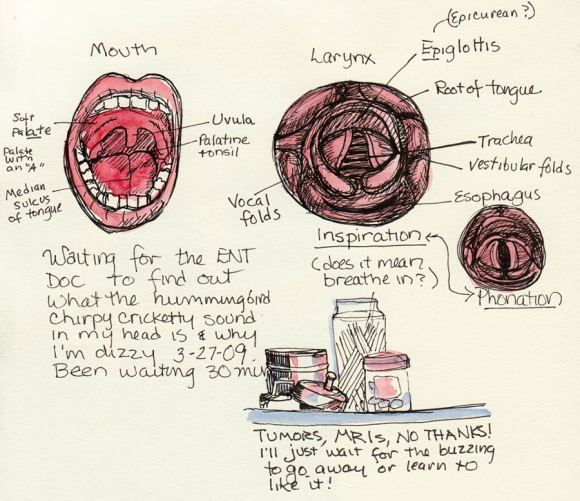 Mouth
Soft
Palate
Palate
with
an "A"
Median
sulcus
of tongue
Uvula
Palatine
tonsil
Larynx
(Epicurean?)
Epiglottis
Root of tongue
Trachea
Vestibular folds
Esophagus
Vocal
folds
Inspiration
(does it mean
breathe in?)
Phonation
Waiting for the ENT
Doc to find out
what the hummingbird
chirpy cricketty sound
in my head is & why
I'm dizzy 3-27-09.
Been waiting 30 min
TUMORS, MRIs, NO THANKS!
I'll just wait for the buzzing
to go away or learn to
like it!